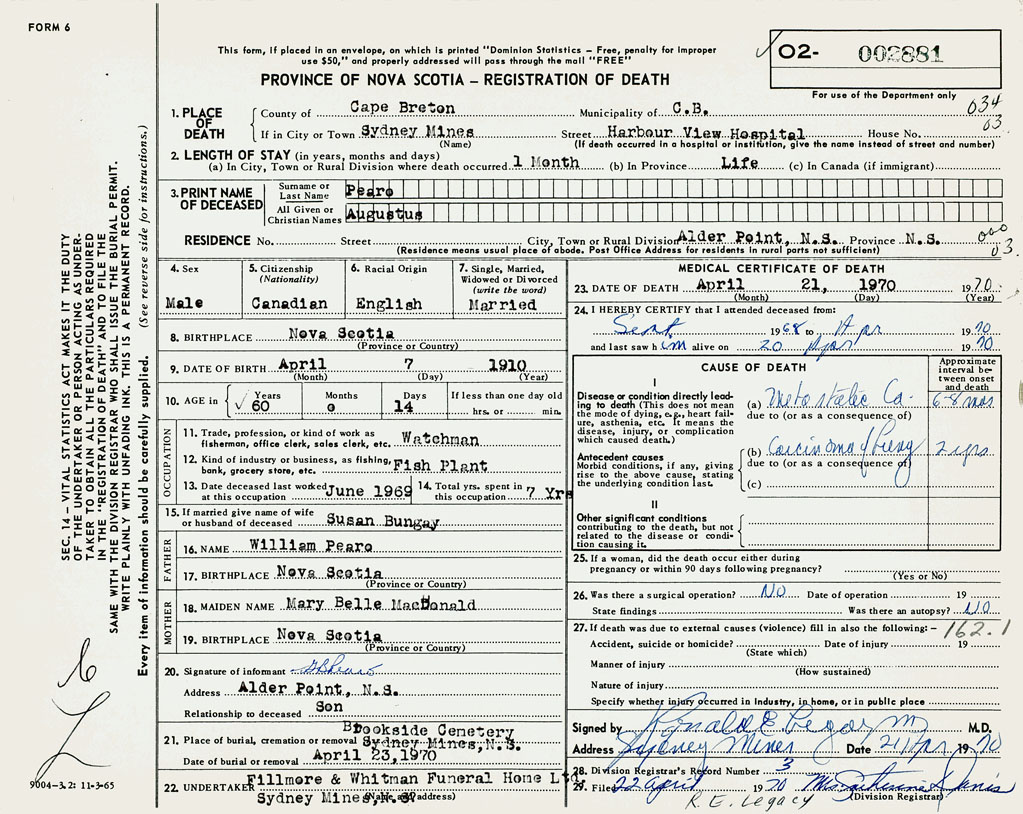 FORM 6
This form, if placed in an envelope, on which is printed "Dominion Statistics – Free, penalty for improper
use $50," and properly addressed will pass through the mail "FREE"
PROVINCE OF NOVA SCOTIA – REGISTRATION OF DEATH
O2- 002881
For use of the Department only
034
03
1. PLACE OF DEATH
County of Cape Breton Municipality of C.B.
If in City or Town Sydney Mines Street Harbour View Hospital House No.
(Name) (If death occurred in a hospital or institution, give the name instead of street and number)
2. LENGTH OF STAY (in years, months and days)
(a) In City, Town or Rural Division where death occurred 1 Month (b) In Province Life (c) In Canada (if immigrant)
3. PRINT NAME OF DECEASED
Surname or Last Name Pearo
All Given or Christian Names Augustus
RESIDENCE No. Street City, Town or Rural Division Alder Point, N.S. Province N.S.
000
03.
(Residence means usual place of abode. Post Office Address for residents in rural parts not sufficient)
4. Sex
Male
5. Citizenship
(Nationality)
Canadian
6. Racial Origin
English
7. Single, Married,
Widowed or Divorced
(write the word)
Married
8. BIRTHPLACE Nova Scotia
(Province or Country)
9. DATE OF BIRTH April 7 1910
(Month) (Day) (Year)
10. AGE in
Years Months Days If less than one day old
60 0 14 hrs. or min.
OCCUPATION
11. Trade, profession, or kind of work as
fisherman, office clerk, sales clerk, etc. Watchman
12. Kind of industry or business, as fishing,
bank, grocery store, etc. Fish Plant
13. Date deceased last worked
at this occupation June 1969
14. Total yrs. spent in
this occupation 7 Yrs
15. If married give name of wife
or husband of deceased Susan Bungay
FATHER
16. NAME William Pearo
17. BIRTHPLACE Nova Scotia
(Province or Country)
MOTHER
18. MAIDEN NAME Mary Belle MacDonald
19. BIRTHPLACE Nova Scotia
(Province or Country)
20. Signature of informant
Address Alder Point, N.S.
Relationship to deceased Son
21. Place of burial, cremation or removal Brookside Cemetery
Sydney Mines, N.S.
Date of burial or removal April 23,1970
22. UNDERTAKER Fillmore & Whitman Funeral Home Ltd.
Sydney Mines, N.S.
(Name and address)
MEDICAL CERTIFICATE OF DEATH
23. DATE OF DEATH April 21, 1970 1970
(Month) (Day) (Year)
24. I HEREBY CERTIFY that I attended deceased from:
Sept 1968 to Apr 1970
and last saw him alive on 20 Apr 1970
CAUSE OF DEATH
Approximate interval between onset and death
I
Disease or condition directly leading to death (This does not mean
the mode of dying, e.g., heart failure, asthenia, etc. It means the
disease, injury, or complication
which caused death.)
(a) Metastatic Ca. 6-8 mos
due to (or as a consequence of)
Antecedent causes
Morbid conditions, if any, giving
rise to the above cause, stating
the underlying condition last.
(b) Carcinoma of lung 2 yrs
due to (or as a consequence of)
(c)
II
Other significant conditions
contributing to the death, but not
related to the disease or condition causing it.
25. If a woman, did the death occur either during
pregnancy or within 90 days following pregnancy?
(Yes or No)
26. Was there a surgical operation? NO Date of operation 19
State findings Was there an autopsy? NO
27. If death was due to external causes (violence) fill in also the following: –
162.1
Accident, suicide or homicide? Date of injury 19
(State which)
Manner of injury
(How sustained)
Nature of injury
Specify whether injury occurred in industry, in home, or in public place
Signed by Ronald E Legay M.D.
Address Sydney Mines Date 21 Apr 1970
28. Division Registrar's Record Number 3
29. Filed 22 April 1970
(Division Registrar)
R.E. Legacy
SEC. 14 – VITAL STATISTICS ACT MAKES IT THE DUTY
OF THE UNDERTAKER OR PERSON ACTING AS UNDERTAKER TO OBTAIN ALL THE PARTICULARS REQUIRED
IN THE "REGISTRATION OF DEATH" AND TO FILE THE
SAME WITH THE DIVISION REGISTRAR WHO SHALL ISSUE THE BURIAL PERMIT.
WRITE PLAINLY WITH UNFADING INK. THIS IS A PERMANENT RECORD.
Every item of information should be carefully supplied. (See reverse side for instructions.)
9004-3.2: 11-3-65